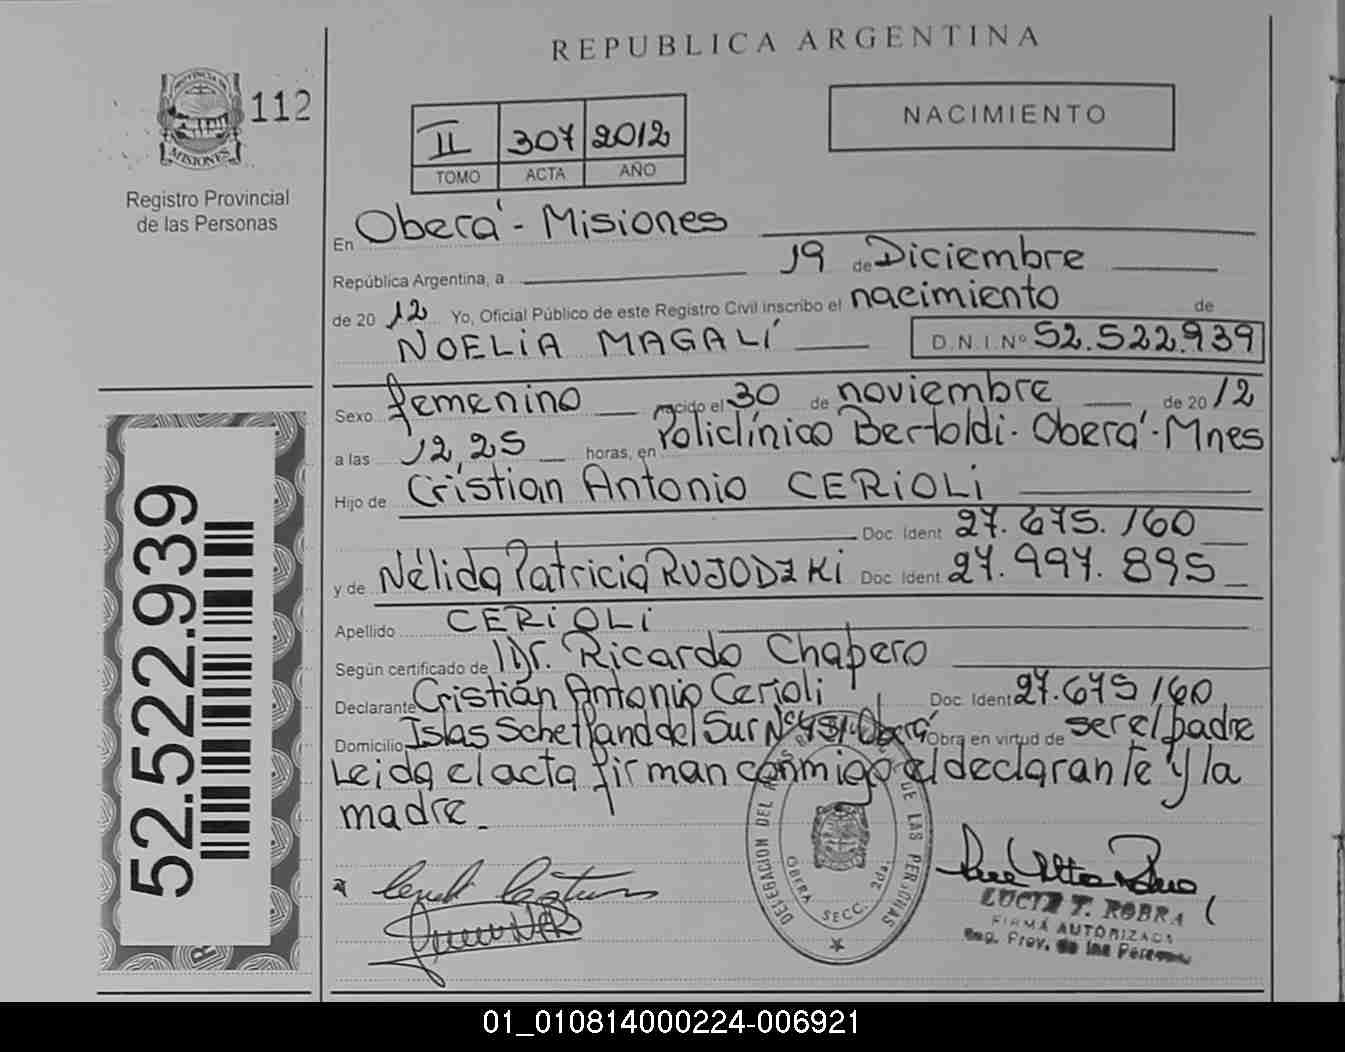 REPUBLICA ARGENTINA
112
NACIMIENTO
II 307 2012
TOMO ACTA AÑO
MISIONES
Registro Provincial
de las Personas
En Oberá - Misiones
República Argentina, a 19 de Diciembre
de 2012 Yo, Oficial Público de este Registro Civil inscribo el nacimiento de
NOELIA MAGALÍ D.N.I.Nº 52.522.939
Sexo femenino nacido el 30 de noviembre de 2012
a las 12,25 horas, en Policlínico Bertoldi - Oberá - Mnes
Hijo de Cristian Antonio CERIOLI
Doc. Ident 27.675.160
y de Nélida Patricia RUJODZKI Doc. Ident 27.997.895
Apellido CERIOLI
Según certificado de Dr. Ricardo Chapero
Declarante Cristian Antonio Cerioli Doc. Ident 27.675160
Domicilio Islas Schetland del Sur Nº Oberá Obra en virtud de ser el padre
Leida el acta firman conmigo el declarante y la
madre.
52.522.939
DELEGACION DEL DE LAS PERSONAS
OBERA SECC. 2da.
T. ROBRA
FIRMA AUTORIZADA
Reg. Prov. de las Personas
01_010814000224-006921